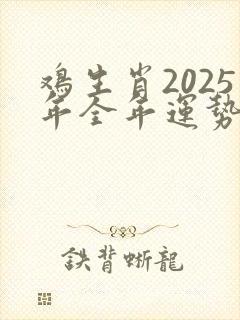 鸡生肖2025
年全年運势
鉄背蜥龍